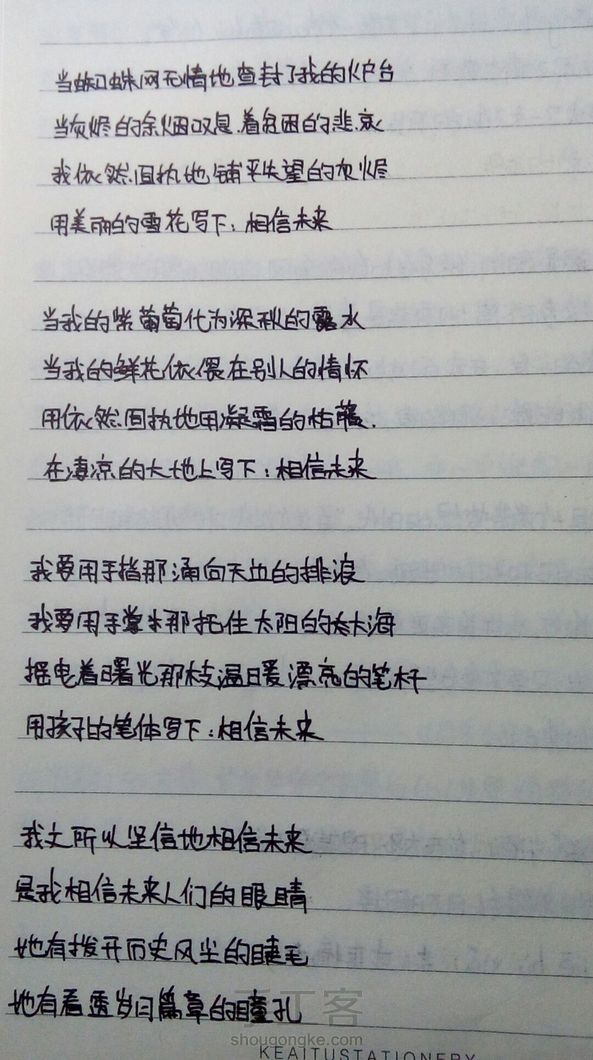 当蜘蛛网无情地查封了我的炉台
当灰烬的余烟叹息着贫困的悲哀
我依然固执地铺平失望的灰烬
用美丽的雪花写下：相信未来
当我的紫葡萄化为深秋的露水
当我的鲜花依偎在别人的情怀
用依然固执地用凝霜的枯藤.
在凄凉的大地上写下：相信未来
我要用手指那涌向天边的排浪
我要用手掌那托住太阳的大海
摇曳着曙光那枝温暖漂亮的笔杆
用孩子的笔体写下：相信未来
我之所以坚信地相信未来
是我相信未来人们的眼睛
她有拨开历史风尘的睫毛
她有看透岁月篇章的瞳孔
手工客
shougongke.com
KEAITUSTATIONERY